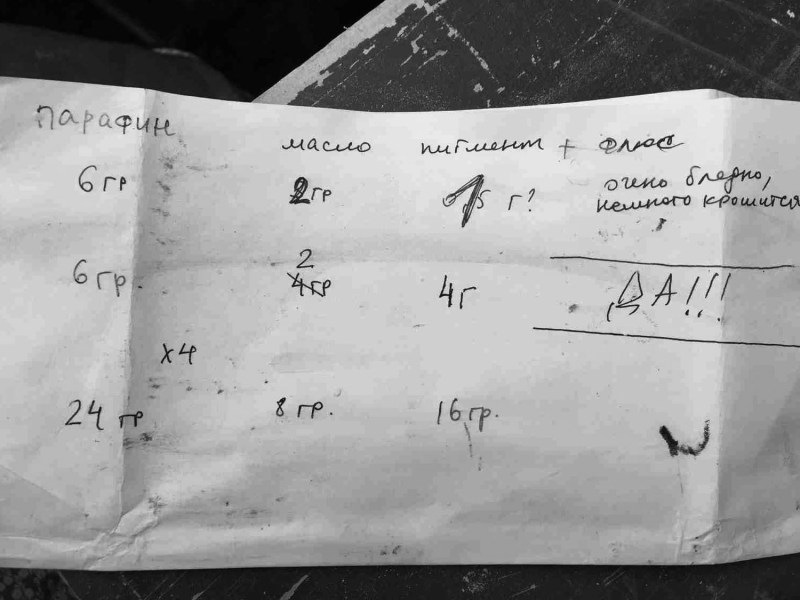 парафин масло пигмент + флюс
6 гр 2гр г? очень бледно,
немного крошится
2
6 гр. 4гр 4г ДА!!!
x4
24 гр 8 гр. 16 гр.